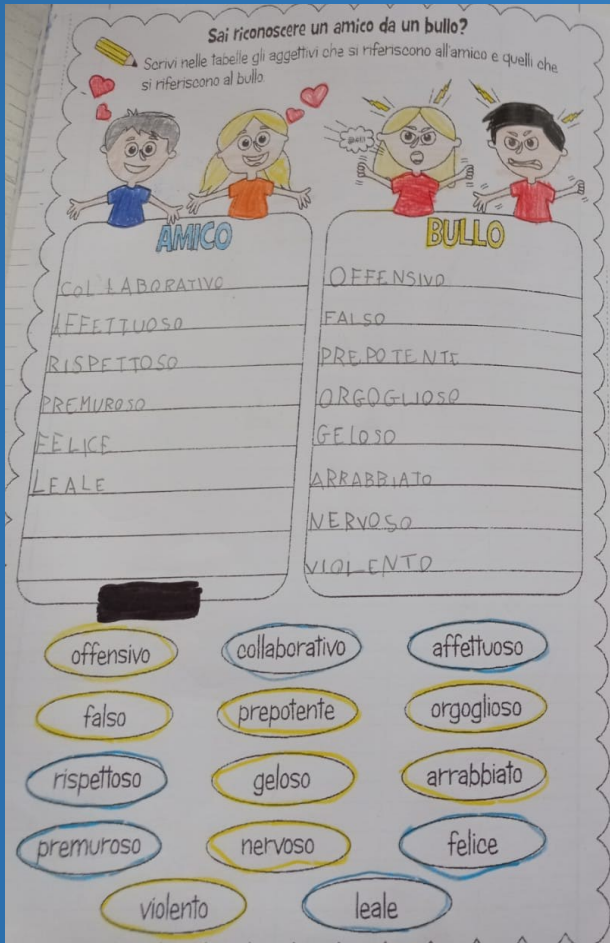 Sai riconoscere un amico da un bullo?
Scrivi nelle tabelle gli aggettivi che si riferiscono all'amico e quelli che
si riferiscono al bullo.
AMICO
COLLABORATIVO
AFFETTUOSO
RISPETTOSO
PREMUROSO
FELICE
LEALE
BULLO
OFFENSIVO
FALSO
PREPOTENTE
ORGOGLIOSO
GELOSO
ARRABBIATO
NERVOSO
VIOLENTO
offensivo collaborativo affettuoso
falso prepotente orgoglioso
rispettoso geloso arrabbiato
premuroso nervoso felice
violento leale